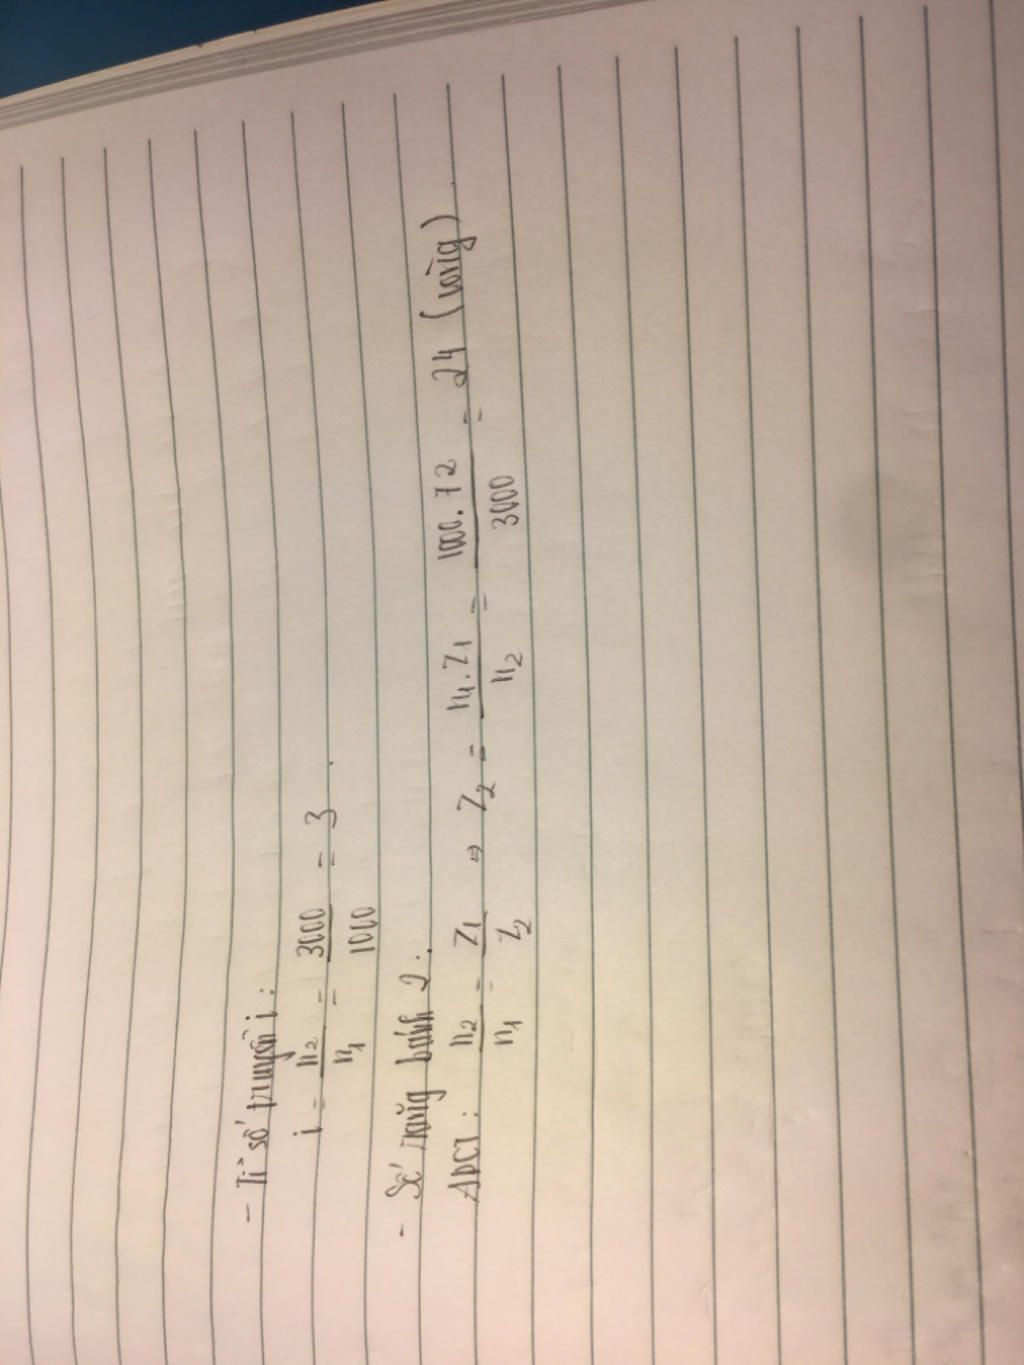 - Tỉ số truyền i :
i = n₂/n₁ = 3000/1000 = 3 .
- Số răng bánh 2 :
ADCT : n₂/n₁ = Z₁/Z₂ ⇒ Z₂ = n₁.Z₁/n₂ = 1000.72/3000 = 24 (răng)